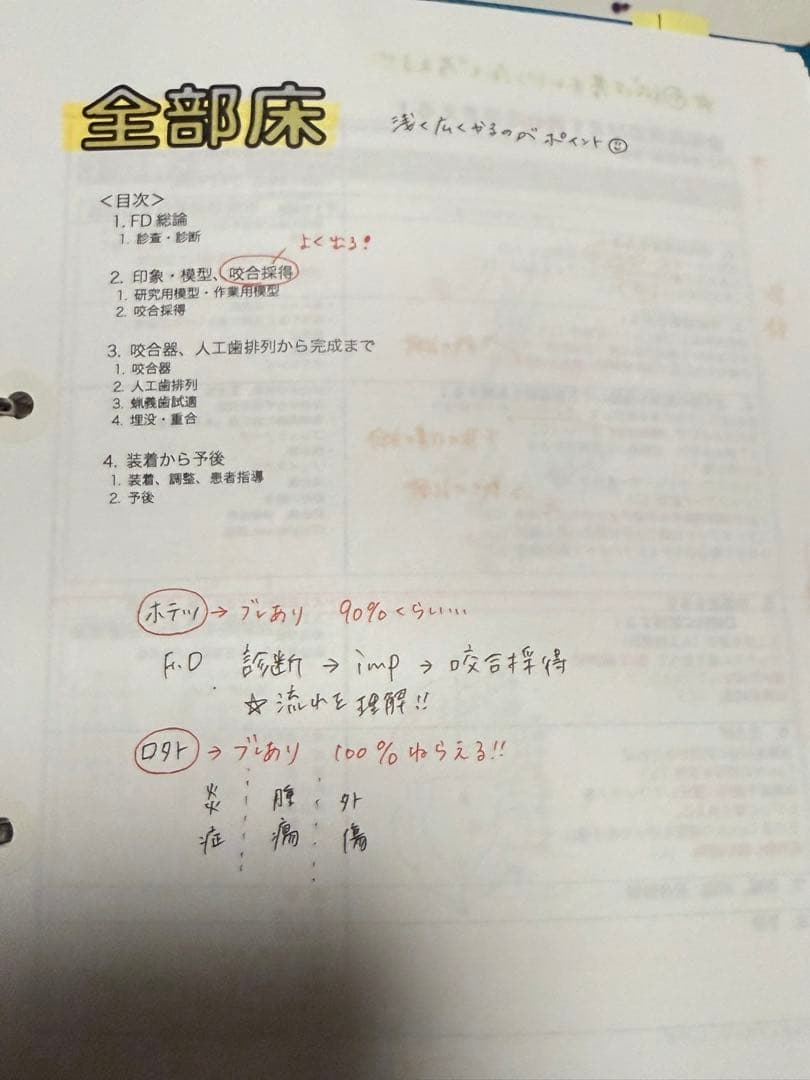 1
全部床
浅く広くやるのがポイント
<目次>
1. FD 総論
1. 診査・診断
よく出る!
2. 印象・模型、咬合採得
1. 研究用模型・作業用模型
2. 咬合採得
3. 咬合器、人工歯排列から完成まで
1. 咬合器
2. 人工歯排列
3. 蝋義歯試適
4. 埋没・重合
4. 装着から予後
1. 装着、調整、患者指導
2. 予後
ホテツ → ブレあり 90%くらい…
F.D 診断 → imp → 咬合採得
☆ 流れを理解!!
口外 → ブレあり 100% ねらえる!!
炎症 腫瘍 外傷